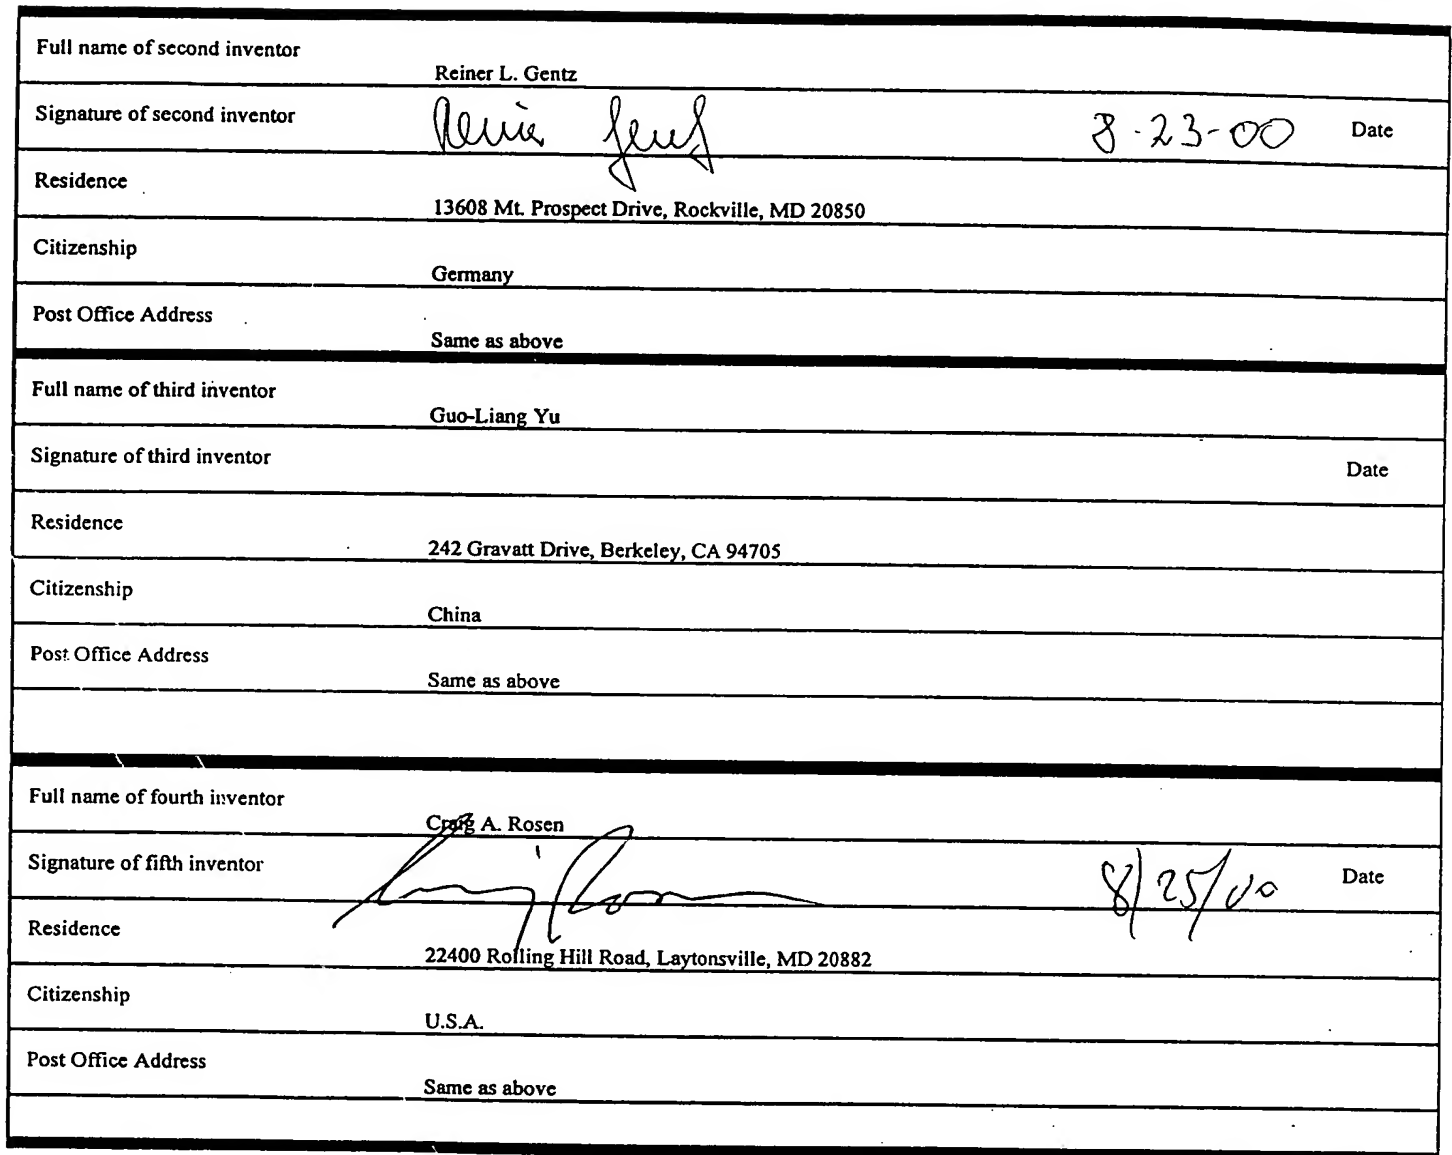 Full name of second inventor
Reiner L. Gentz
Signature of second inventor
Reiner Gentz 8-23-00 Date
Residence
13608 Mt. Prospect Drive, Rockville, MD 20850
Citizenship
Germany
Post Office Address
Same as above
Full name of third inventor
Guo-Liang Yu
Signature of third inventor Date
Residence
242 Gravatt Drive, Berkeley, CA 94705
Citizenship
China
Post Office Address
Same as above
Full name of fourth inventor
Craig A. Rosen
Signature of fifth inventor
8/25/00 Date
Residence
22400 Rolling Hill Road, Laytonsville, MD 20882
Citizenship
U.S.A.
Post Office Address
Same as above